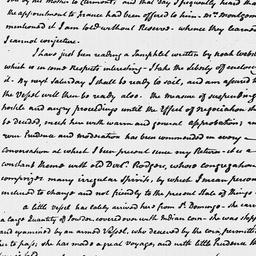 by his mother to Clermont, and that Jay frequently heard that
the appointment to France had been offered to him. Mr. Montgom
mentioned it I am told without Reserve - whence they learned
I cannot conjecture.
I have just been reading a Pamphlet written by Noah Webste
which is in some Respects interesting - I take the Liberty of enclose
it. By next Saturday I shall be ready to sail, and am assured t
the Vessel will then be ready also. The measure of suspending
hostile and angry proceedings until the Effect of negociation sh
be decided, meets here with warm and general approbation; an
your Prudence and moderation has been commended in every
Conversation at which I been present since my Return - it is a
constant theme with old Doctr. Rodgers, whose congregation
comprizes many irregular Spirits, by which I mean person
inclined to change and not friendly to the present State of things -
A little vessel has lately arrived here from St. Domingo - she carr
a large Quantity of London, covered even with Indian corn - she was stopp
and examined by an armed Vessel, who deceived by the corn permitted
her to pass; she has made a great voyage, and with little Prudence th